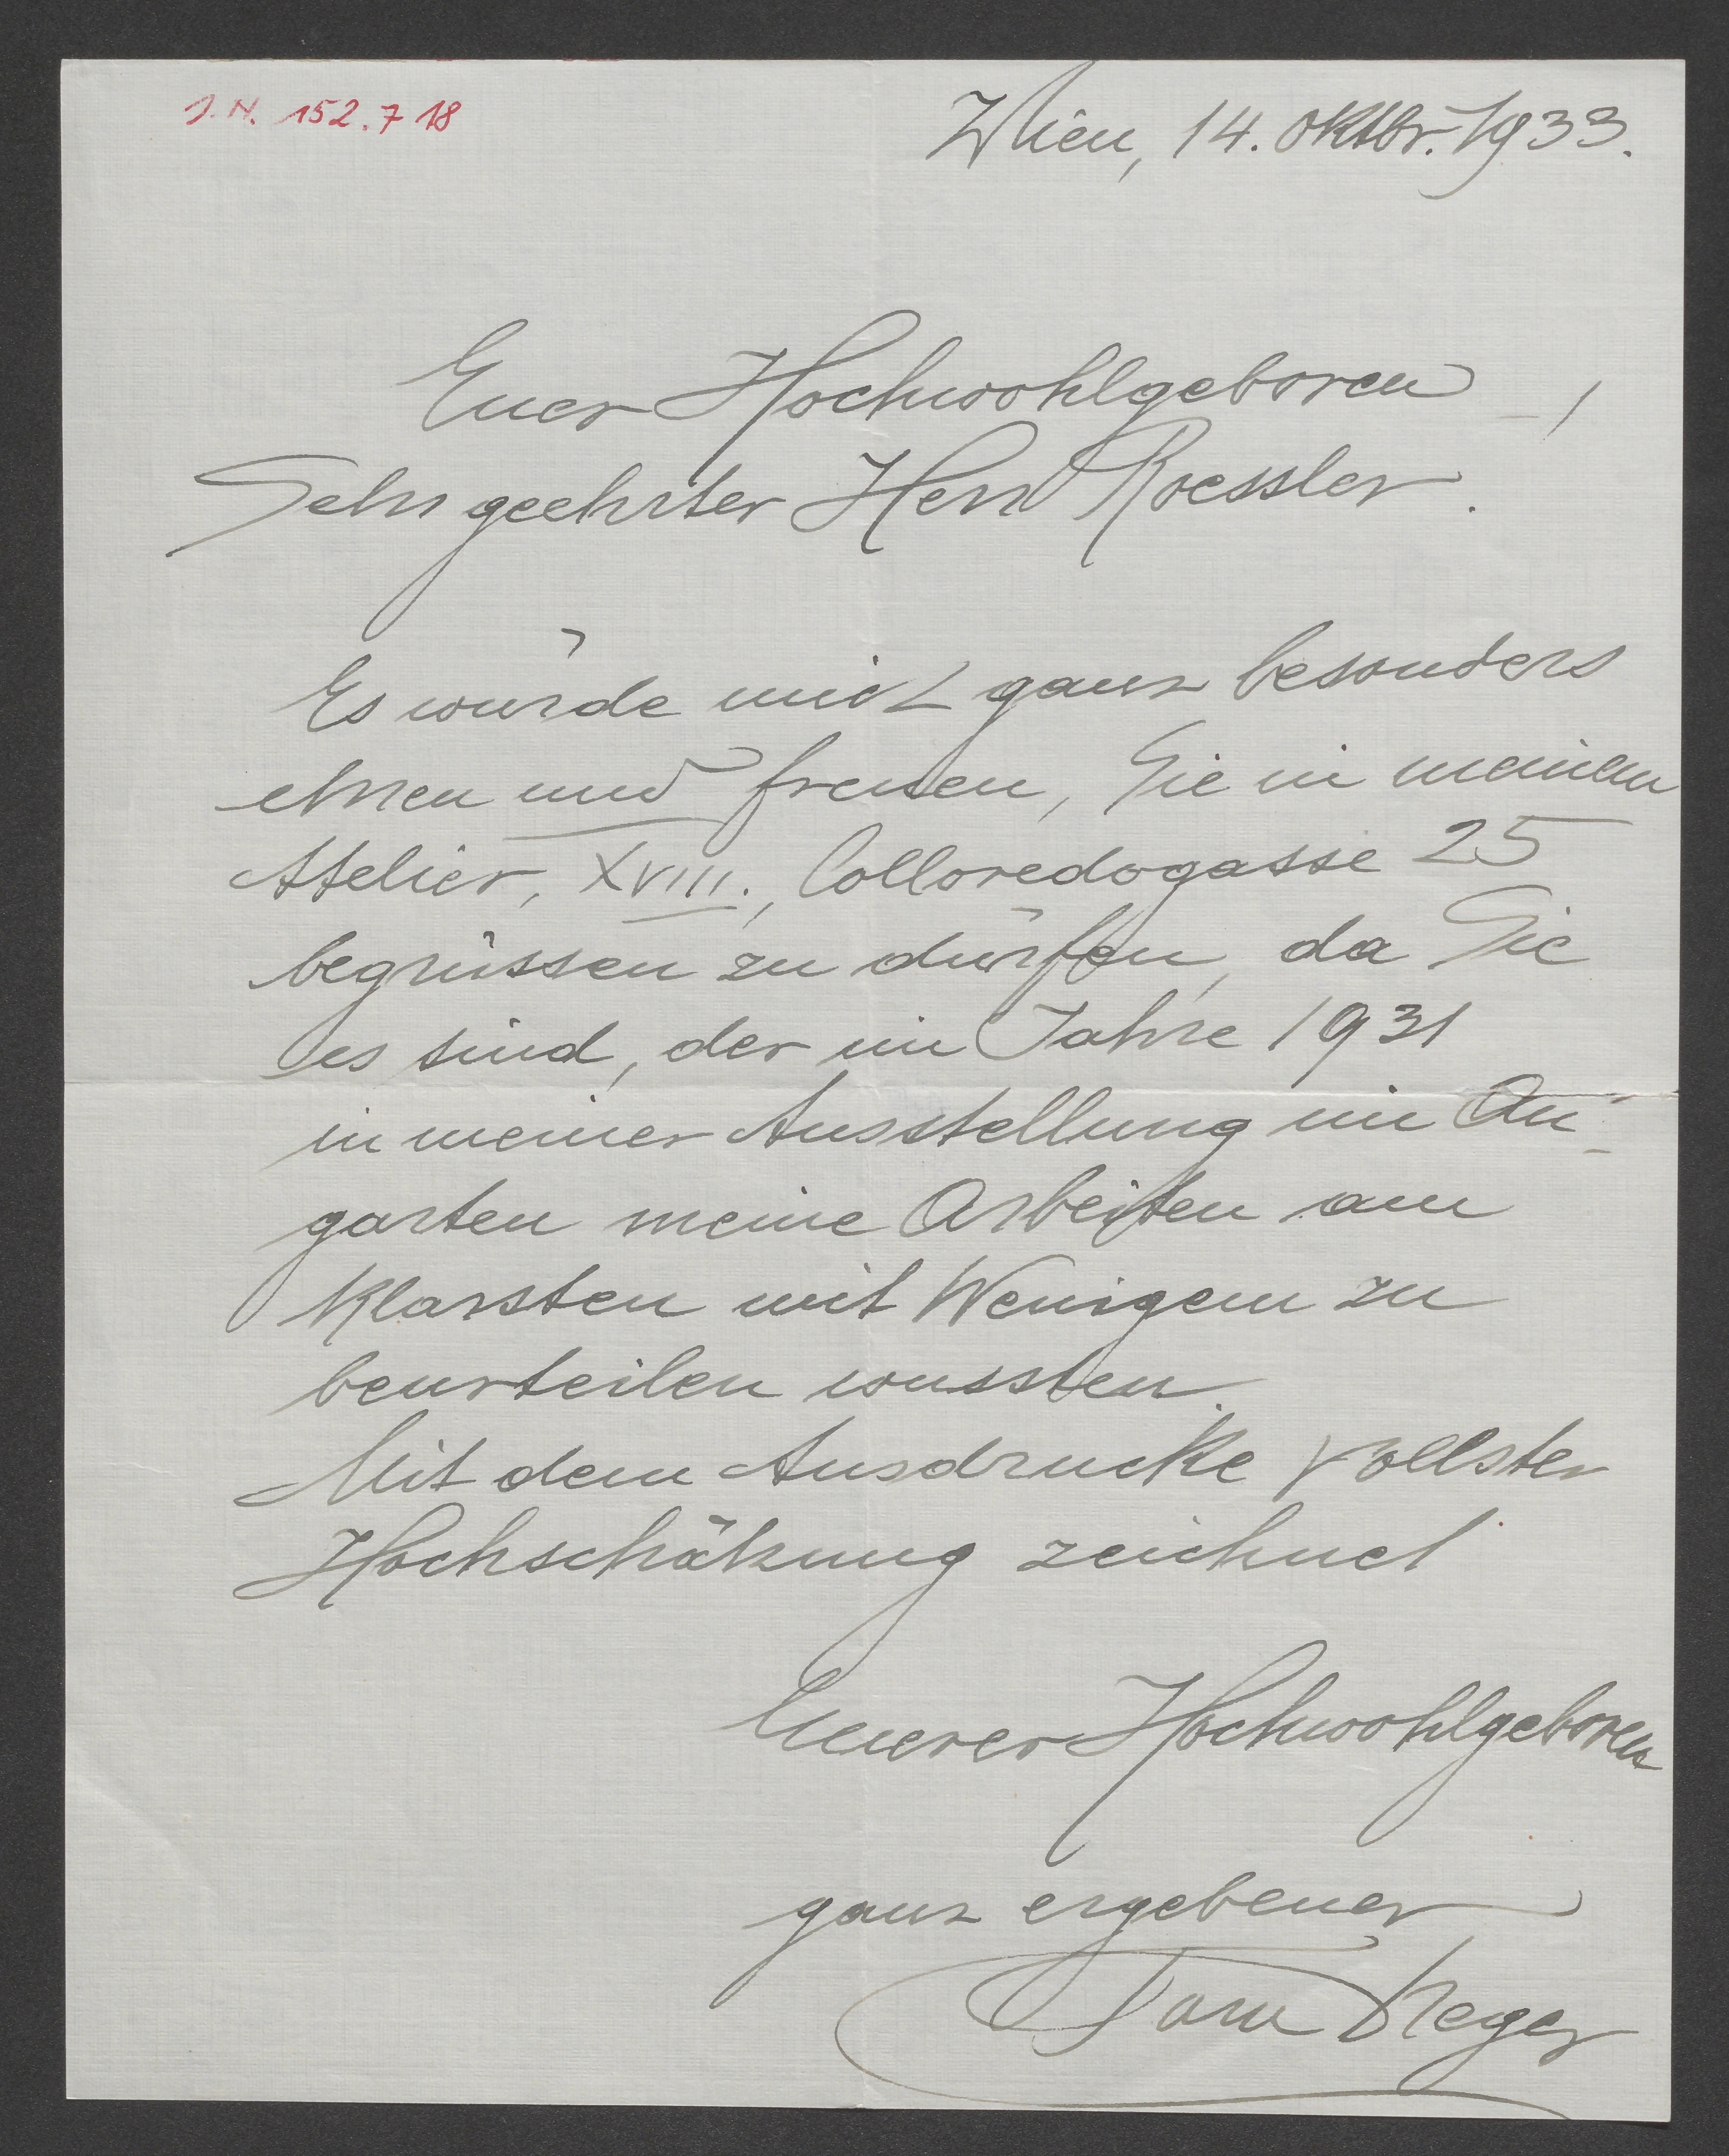 J.N. 152.718
Wien, 14. Oktbr. 1933.
Euer Hochwohlgeboren –,
Sehr geehrter Herr Roessler.
Es würde mich ganz besonders
ehren und freuen, Sie in meinem
Atelier, XVIII., Colloredogasse 25
begrüssen zu dürfen, da Sie
es sind, der im Jahre 1931
in meiner Ausstellung im Au-
garten meine Arbeiten am
Klarsten mit Wenigem zu
beurteilen wussten.
Mit dem Ausdrucke vollster
Hochschätzung zeichnet
Euerer Hochwohlgeboren
ganz ergebener